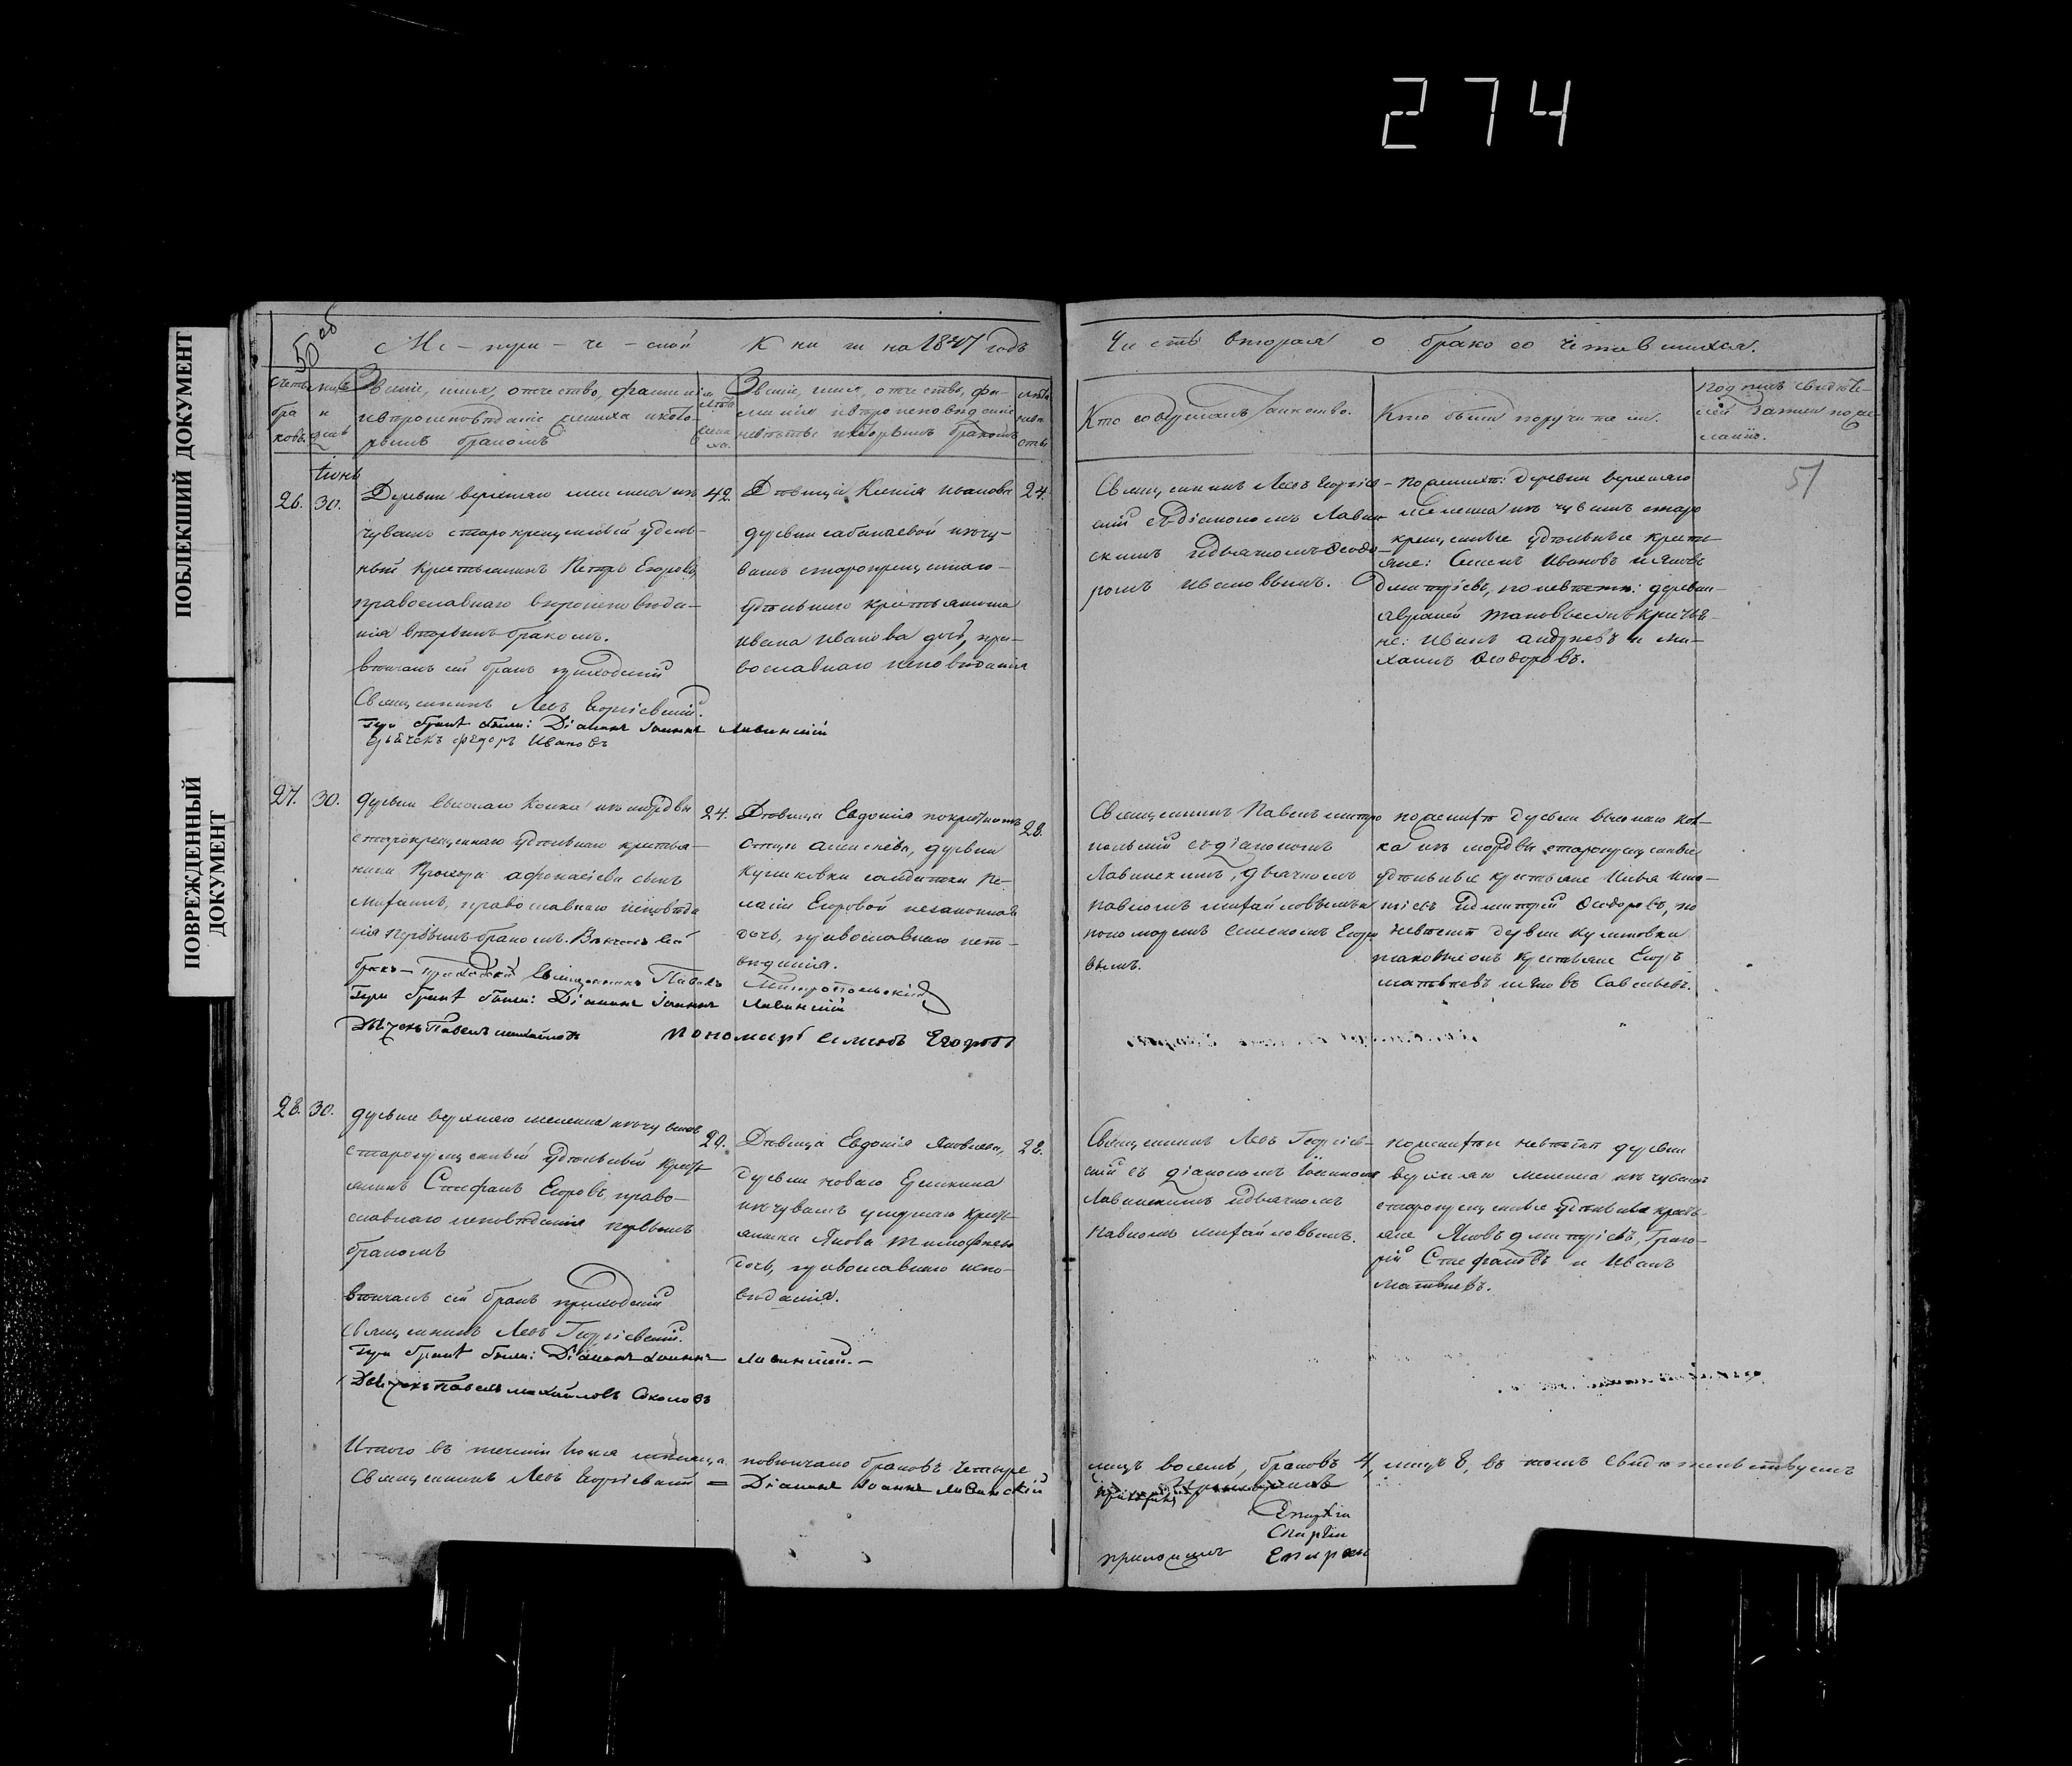 274
ПОБЛЕКШИЙ ДОКУМЕНТ
ПОВРЕЖДЕННЫЙ
ДОКУМЕНТ
50 об
Ме-три-че-ской Книги на 1847 годъ
Часть вторая о бракосочетавшихся.
Счетъ браковъ.
Званіе, имя, отчество, фамилія
и вѣроисповѣданіе жениха и кото-
рымъ бракомъ
лѣта жениха.
Званіе, имя, отчество, фа-
милію и вѣроисповѣданіе
невѣсты и которымъ бракомъ
лѣта невѣсты
Кто совершалъ таинство.
Кто были поручители.
Подпись свидѣте-
лей записи по же-
ланію.
51
Іюнь
26. 30.
Деревни верхняго
чувашъ старокрещеный удѣль-
ный крестьянинъ Петръ Егоровъ
православнаго вѣроисповѣда-
нія вторымъ бракомъ.
вѣнчалъ сей бракъ приходскій
Священникъ Левъ Георгіевскій.
При бракѣ были: Діаконъ Іоаннъ Лавинскій
дьячекъ Федоръ Ивановъ
42.
Дѣвица Ксенія Иванова
деревни сабанаевой изъ чу-
вашъ старокрещенаго
удѣльнаго крестьянина
Ивана Иванова дочь, пра-
вославнаго исповѣданія
24.
Священникъ Левъ Георгіев-
скій съ діакономъ Лавин-
скимъ и дьячкомъ Ѳеодо-
ромъ Ивановымъ.
По женихѣ: деревни верхняго
изъ чувашъ старо
крещеные удѣльные крестья-
яне: Семенъ Ивановъ и Яковъ
Дмитріевъ, по невѣстѣ: деревни
таковые жъ крестья-
не: Иванъ Андреевъ и Ми-
хаилъ Ѳеодоровъ.
27. 30.
деревни изъ мордвы
старокрещеннаго удѣльнаго крестья-
нина Прохора Афонасіева сынъ
православнаго исповѣда
нія первымъ бракомъ. Вѣнчалъ сей
бракъ - Приходскій Священникъ Павелъ Митропольскій
При бракѣ были: Діаконъ Іоаннъ Лавинскій
Дьячекъ Павелъ Михайловъ Пономарь Семенъ Егоровъ
24.
Дѣвица Евдокія по крестномъ
отцѣ Алексѣева, деревни
солдатки Пе-
лагіи Егоровой незаконная
дочь, православнаго испо-
вѣданія.
28.
Священникъ Павелъ митро
польскій съ діакономъ
Лавинскимъ, дьячкомъ
Павломъ Михайловымъ и
пономаремъ Семеномъ Егоро
вымъ.
по женихѣ деревни
ка изъ мордвы старокрещеные
удѣльные крестьяне Илья
и Дмитрій Ѳеодоровъ, по
невѣстѣ деревни
таковые жъ крестьяне Егоръ
Матвѣевъ и Яковъ Савельевъ.
28. 30.
деревни верхняго изъ чувашъ
старокрещеный удѣльный кресть
янинъ Стефанъ Егоровъ, право-
славнаго исповѣданія первымъ
бракомъ
вѣнчалъ сей бракъ приходскій
священникъ Левъ Георгіевскій.
При бракѣ были: Діаконъ Іоаннъ Лавинскій.-
Дьячекъ Павелъ Михайловъ Соколовъ
20.
Дѣвица Евдокія Яковлева,
деревни новаго
изъ чувашъ кресть-
янина Якова Тимофѣева
дочь, православнаго испо-
вѣданія.
22.
Священникъ Левъ Георгіев-
скій съ діакономъ Іоанномъ
Лавинскимъ и дьячкомъ
Павломъ Михайловымъ.
по женихѣ и невѣстѣ деревни
верхняго изъ чувашъ
старокрещеные удѣльные кресть-
яне Яковъ Дмитріевъ, Григо-
рій Стефановъ и Иванъ
Матвѣевъ.
Итого въ теченіи Іюня мѣсяца повѣнчано браковъ четыре
лицъ восемь, браковъ 4, лицъ 8, въ томъ свидѣтельствуемъ
Священникъ Левъ Георгіевскій = Діаконъ Іоаннъ Лавинскій